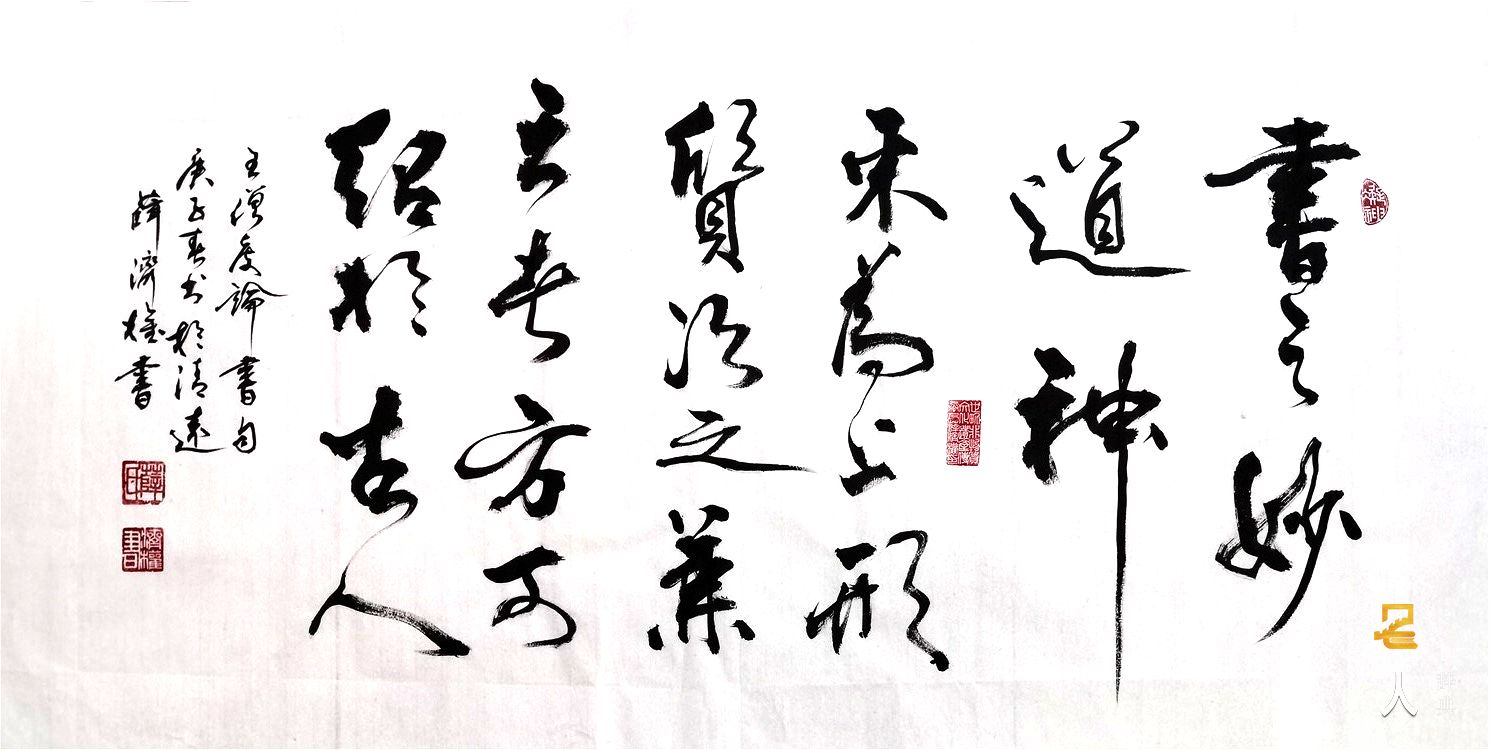 書之妙
道神
采為上形
質次之兼
之者方可
紹於古人
王僧虔論書句
庚子春书於清遠
薛濟權書
薛氏
濟權書
人